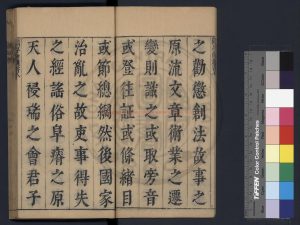 之勸懲創法故事之
原流文章術業之遷
變則識之或取旁音
或登往証或條緒目
或節總綱然後國家
治亂之故吏事得失
之經謠俗阜瘠之原
天人祲瑞之會君子
TIFFEN Color Control Patches